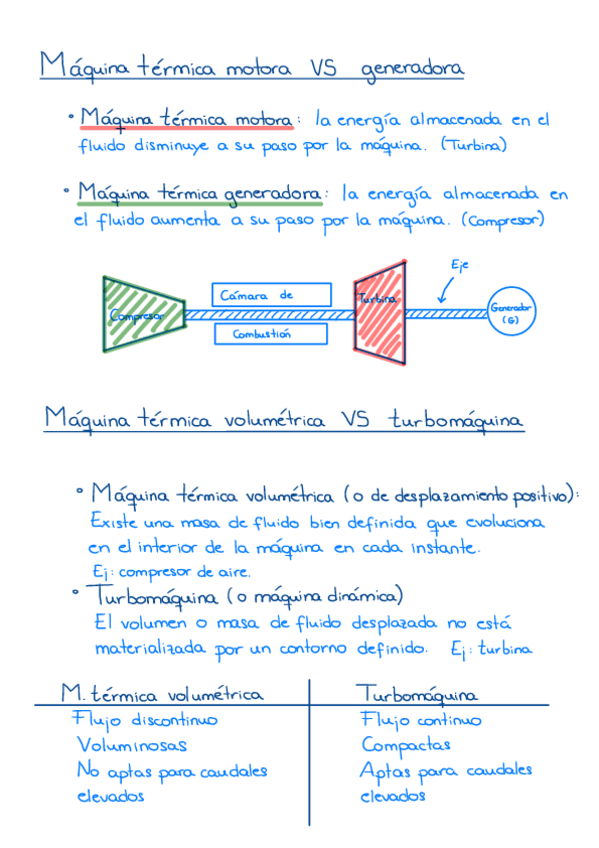 Máquina térmica motora VS generadora
• Máquina térmica motora: la energía almacenada en el
fluido disminuye a su paso por la máquina. (Turbina)
• Máquina térmica generadora: la energía almacenada en
el fluido aumenta a su paso por la máquina. (Compresor)
Eje
Cámara de
Turbina
Compresor
Generador
(G)
Combustión
Máquina térmica volumétrica VS turbomáquina
• Máquina térmica volumétrica (o de desplazamiento positivo):
Existe una masa de fluido bien definida que evoluciona
en el interior de la máquina en cada instante.
Ej: compresor de aire.
• Turbomáquina (o máquina dinámica)
El volumen o masa de fluido desplazada no está
materializada por un contorno definido. Ej: turbina
M. térmica volumétrica Turbomáquina
Flujo discontinuo Flujo continuo
Voluminosas Compactas
No aptas para caudales Aptas para caudales
elevados elevados